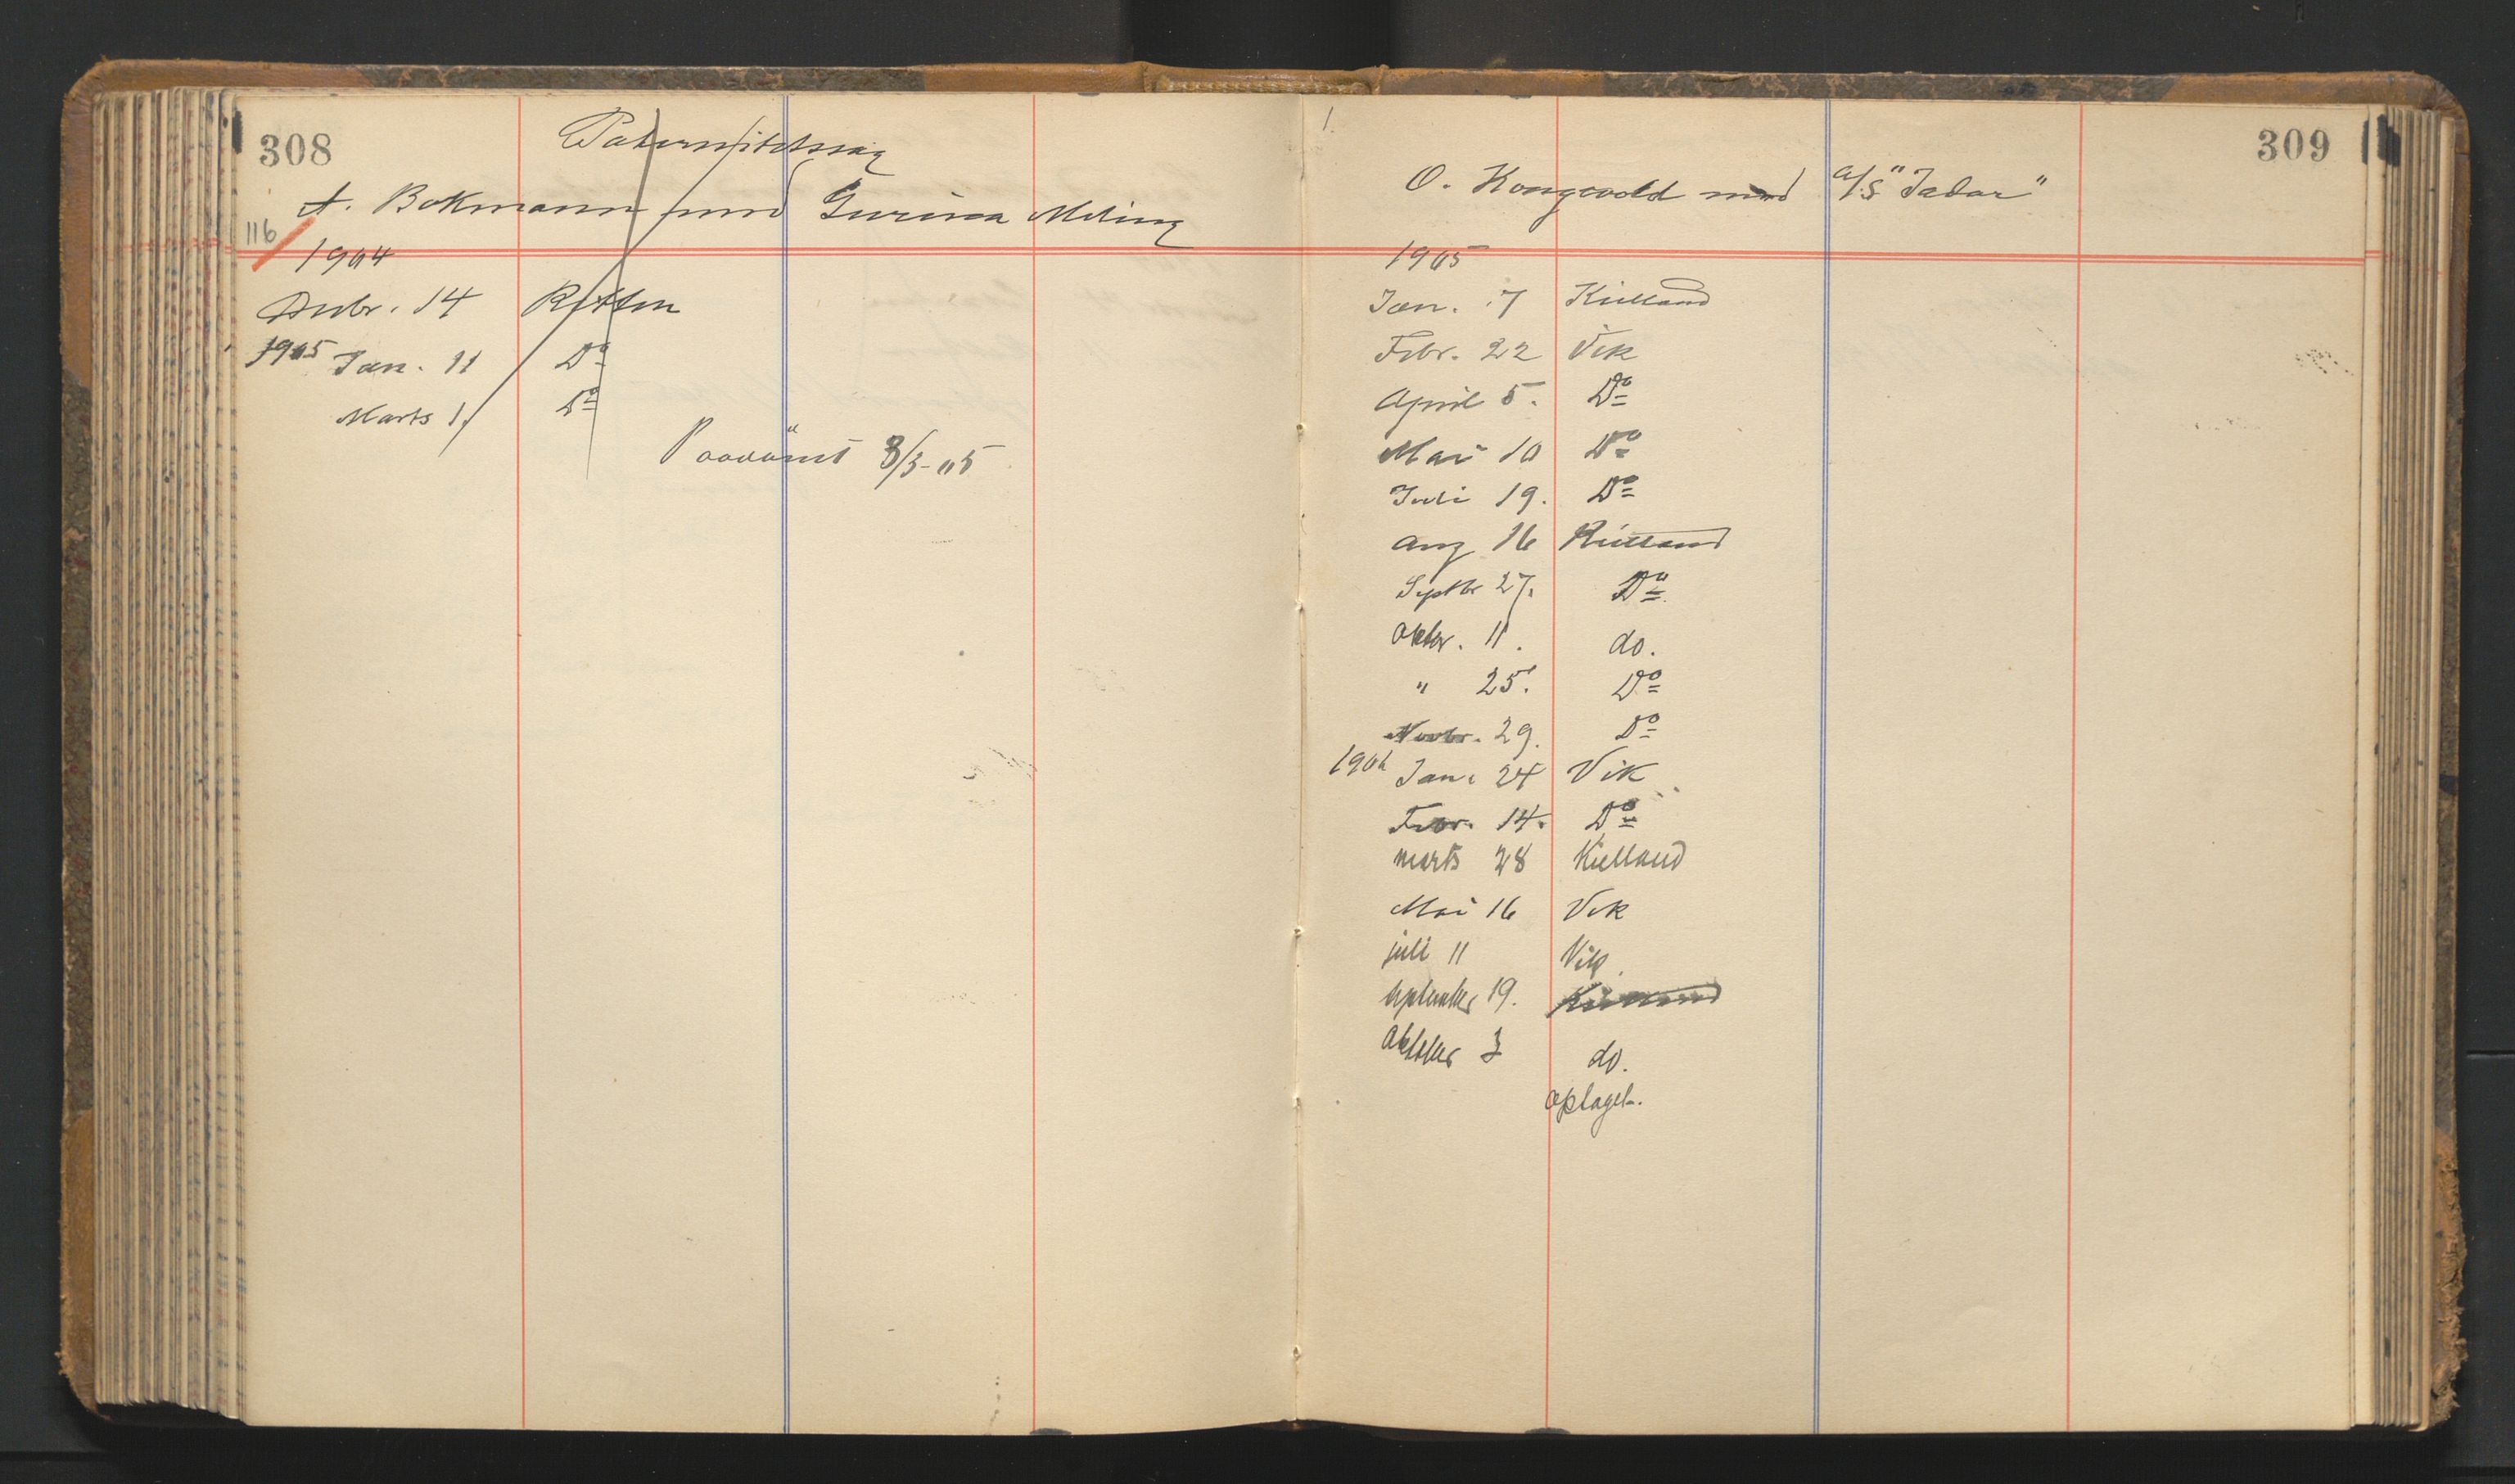 308
Paternitetssag
A. Bokmann mod Gurina Meling
116
1904
Decbr. 14 Retten
1905 Jan. 11 Do
Marts 1. Do
Paadømt 8/3-05
1.
309
O. Kongsvold mod A/S "Jadar"
1905
Jan. 17 Kielland
Febr. 22 Vik
April 5. Do
Mai 10 Do
Juli 19. Do
Aug 16 Kielland
Septbr 27. Do
Oktbr. 11. do.
" 25. Do
Novbr. 29. Do
1906 Jan. 24 Vik
Febr. 14. Do
marts 28 Kielland
Mai 16 Vik
juli 11 Vik
september 19. Kielland
Oktober 3 do.
optaget.